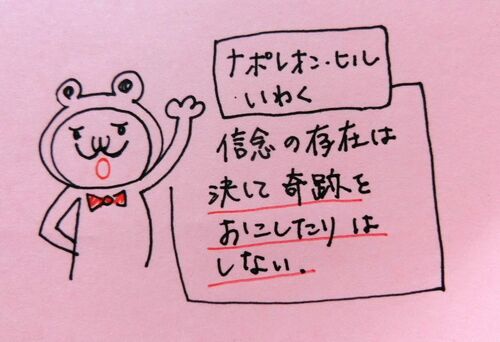 ナポレオン・ヒル
いわく
信念の存在は
決して奇跡を
おこしたりは
しない.